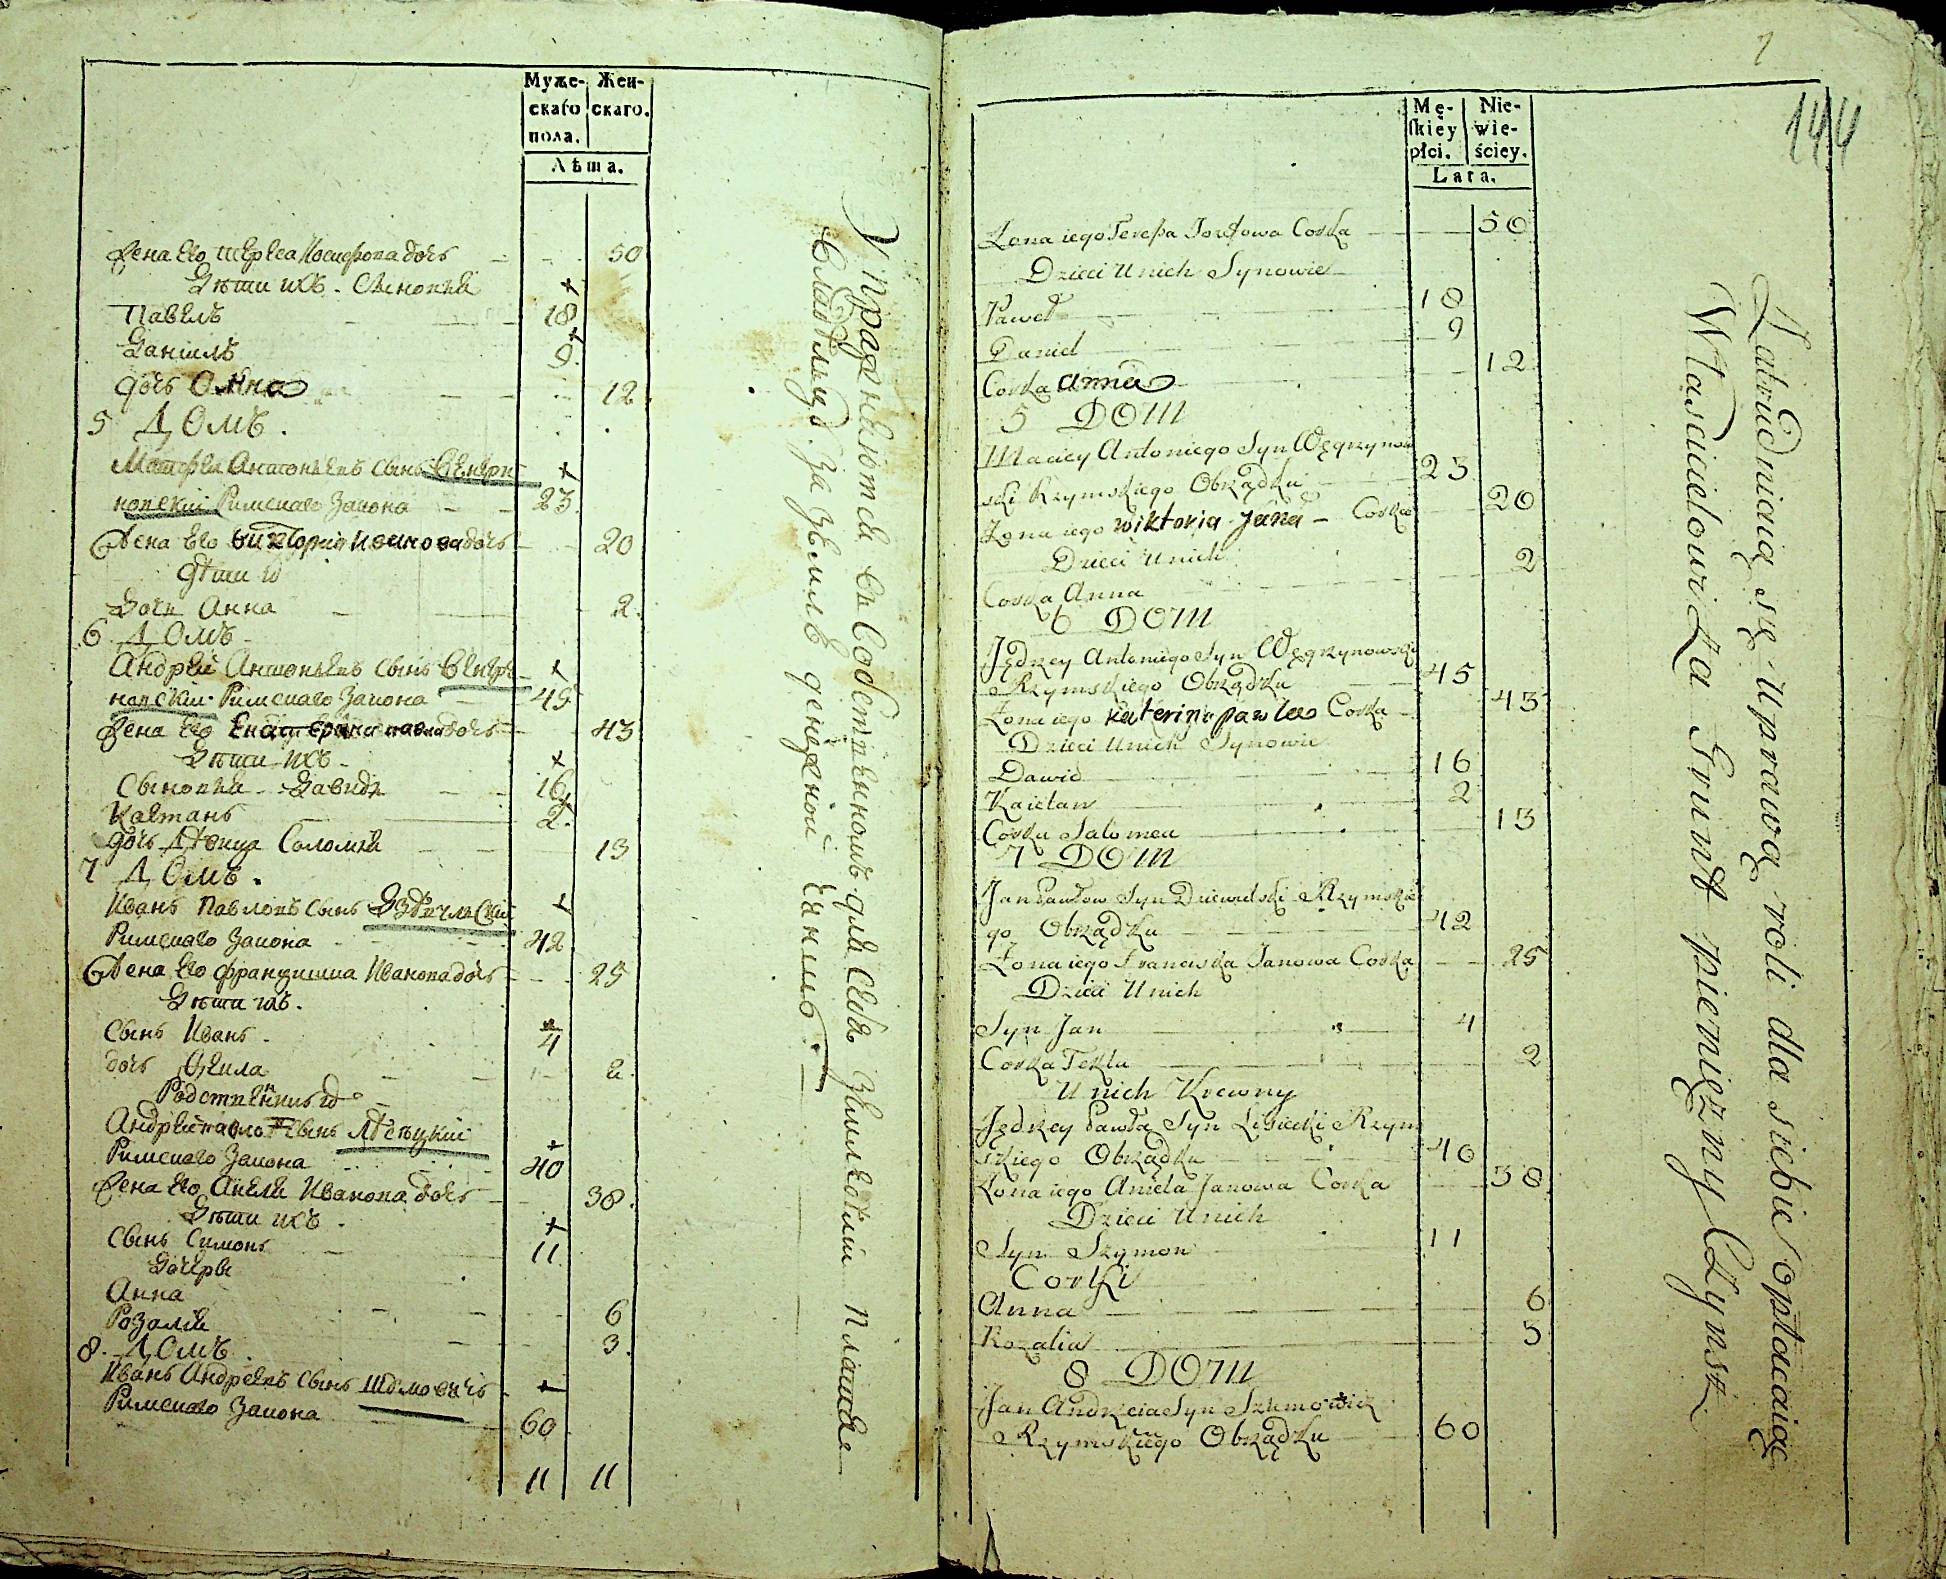 Муже-
скаго
пола.
Жен-
скаго.
Лѣта.
Жена его Тереса Іосифова дочь 50
Дѣти ихъ. Сыновья
Павелъ 18
Даніилъ 9.
дочь Анна 12
5 Домъ.
Матфей Антоньевъ сынъ Венгри
новскій Римскаго Закона 23.
Жена его Викторія Иванова дочь 20
Дѣти и
Дочь Анна 2.
6 Домъ
Андрей Антоньевъ сынъ Венгри
новскій Римскаго Закона 45
Жена его Екатерина Павла дочь 43
Дѣти ихъ
Сыновья Давидъ 16
Каетанъ 2.
дочь Соломея 13
7 Домъ.
Иванъ Павловъ сынъ
Римскаго Закона 42
Жена его Францишка Иванова дочь 25
Дѣти ихъ.
Сынъ Иванъ 4
дочь Текла 2.
Андрей Павловъ сынъ
Римскаго Закона 40
Жена его Анеля Иванова дочь 38.
Дѣти ихъ
Сынъ Симонъ 11
Дочери
Анна 6
Розалія 3.
8. Домъ
Иванъ Андреевъ сынъ Шумовичъ
Римскаго Закона 60
11 11
Упражняются въ Собственномъ для себя Земледѣліи Платя
Владѣльцу за Землѣ денежной Чиншъ.
7
144
Mę-
ſkiey
płci.
Nie-
wie-
ściey.
Lata.
Żona iego Teressa Jozefowa Corka 50
Dzieci u nich Synowie
Paweł 18
Daniel 9
Corka Anna 12
5 DOM
Maciey Antoniego Syn Węgrzynow
ski Rzymskiego Obrządku 23
Żona iego wiktoria Jana Corka 20
Dzieci u nich
Corka Anna 2
6 DOM
Jędrzey Antoniego Syn Węgrzynowski
Rzymskiego Obrządku 45
Żona iego katerina pawla Corka 43
Dzieci u nich Synowie
Dawid 16
Kaietan 2
Corka Salomea 13
7 DOM
Jan Pawłow Syn Dziewulski Rzymskie
go Obrządku 42
Żona iego Franciska Janowa Corka 25
Dzieci u nich
Syn Jan 4
Corka Tekla 2
U nich Krewny
Jędrzey Pawła Syn Lisiecki Rzym
skiego Obrządku 40
Żona iego Aniela Janowa Corka 38
Dzieci u nich
Syn Szymon 11
Corki
Anna 6
Rozalia 3
8 DOM
Jan Andrzeia Syn Szumowicz
Rzymskiego Obrządku 60
Zatrudniaią się uprawą roli dla siebie opłacaiąc
Włascicielowi Za Grunt pieniężny Czynsz